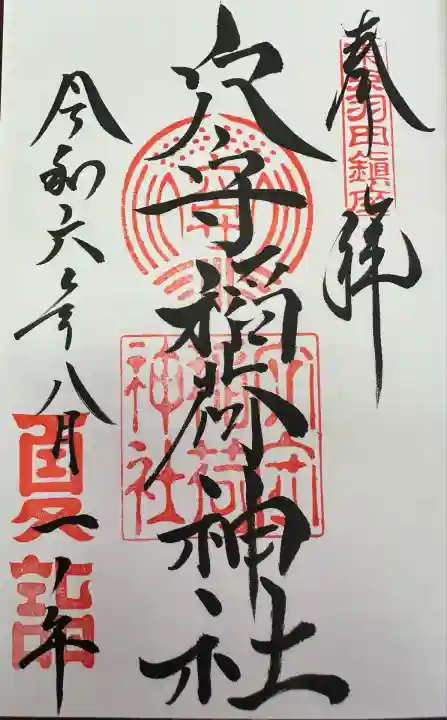 奉拝
東京羽田鎮座
穴守稲荷神社
穴守
稲荷
神社
令和六年八月
夏詣